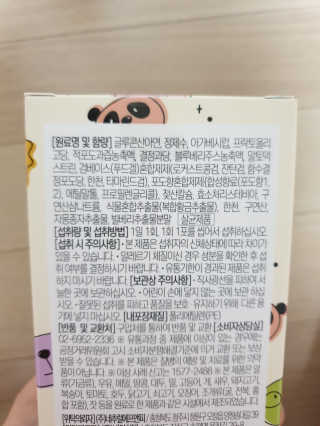 [원료명 및 함량] 글루콘산아연, 정제수, 아가베시럽, 프락토올리
고당, 적포도과즙농축액, 결정과당, 블루베리주스농축액, 말토덱
스트린, 검비스(푸드겔)혼합제제(로커스트콩검, 잔탄검, 함수결
정포도당, 한천, 타마린드검), 포도향혼합제제(합성향료(포도향1,
2), 에틸알콜, 프로필렌글리콜), 젖산칼슘, 효소처리스테비아, 구
연산삼나트륨, 식물혼합추출물(복합황금추출물), 한천, 구연산,
자몽종자추출물, 빌베리추출물분말 [실균제품]
[섭취량 및 섭취방법] 1일 1회, 1회 1포를 씹어서 섭취하십시오
[섭취 시 주의사항] • 본 제품은 섭취자의 신체상태에 따라 차이가
있을 수 있습니다. • 알레르기 체질이신 경우 성분을 확인한 후 섭
취 여부를 결정하시기 바랍니다. • 유통기한이 경과된 제품은 섭취
하지 마시기 바랍니다. [보관상 주의사항] • 직사광선을 피하여 서
늘한 곳에 보관하십시오 • 어린이 손에 닿지 않는 곳에 보관하십시
오 • 잘못된 섭취를 피하고 품질을 보증 · 유지하기 위해 다른 용기
에 넣지 마십시오. [내포장재질] 폴리에틸렌(PE)
[반품 및 교환처] 구입처를 통하여 반품 및 교환 [소비자상담실]
02-6952-2336 ※ 유통과정 중 제품에 이상이 있는 경우에는
공정거래위원회 고시 소비자분쟁해결기준에 의거 교환 또는 보상
받을 수 있습니다. ※ 본 제품은 질병의 예방 및 치료를 위한 의약
품이 아닙니다. ※ 이상 사례 신고는 1577-2488 ※ 본 제품은 알
류(가금류), 우유, 메밀, 땅콩, 대두, 밀, 고등어, 게, 새우, 돼지고기,
복숭아, 토마토, 호두, 닭고기, 쇠고기, 오징어, 조개류(굴, 전복, 홍
합 포함), 잣 등을 원료로 한 제품과 같은 시설에서 제조되었습니다.